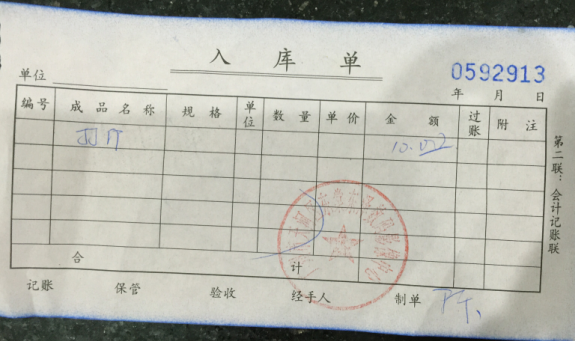 入库单
0592913
单位
年 月 日
编号 成品名称 规格 单位 数量 单价 金额 过账 附注
10.00
合计
第二联：会计记账联
记账 保管 验收 经手人 制单